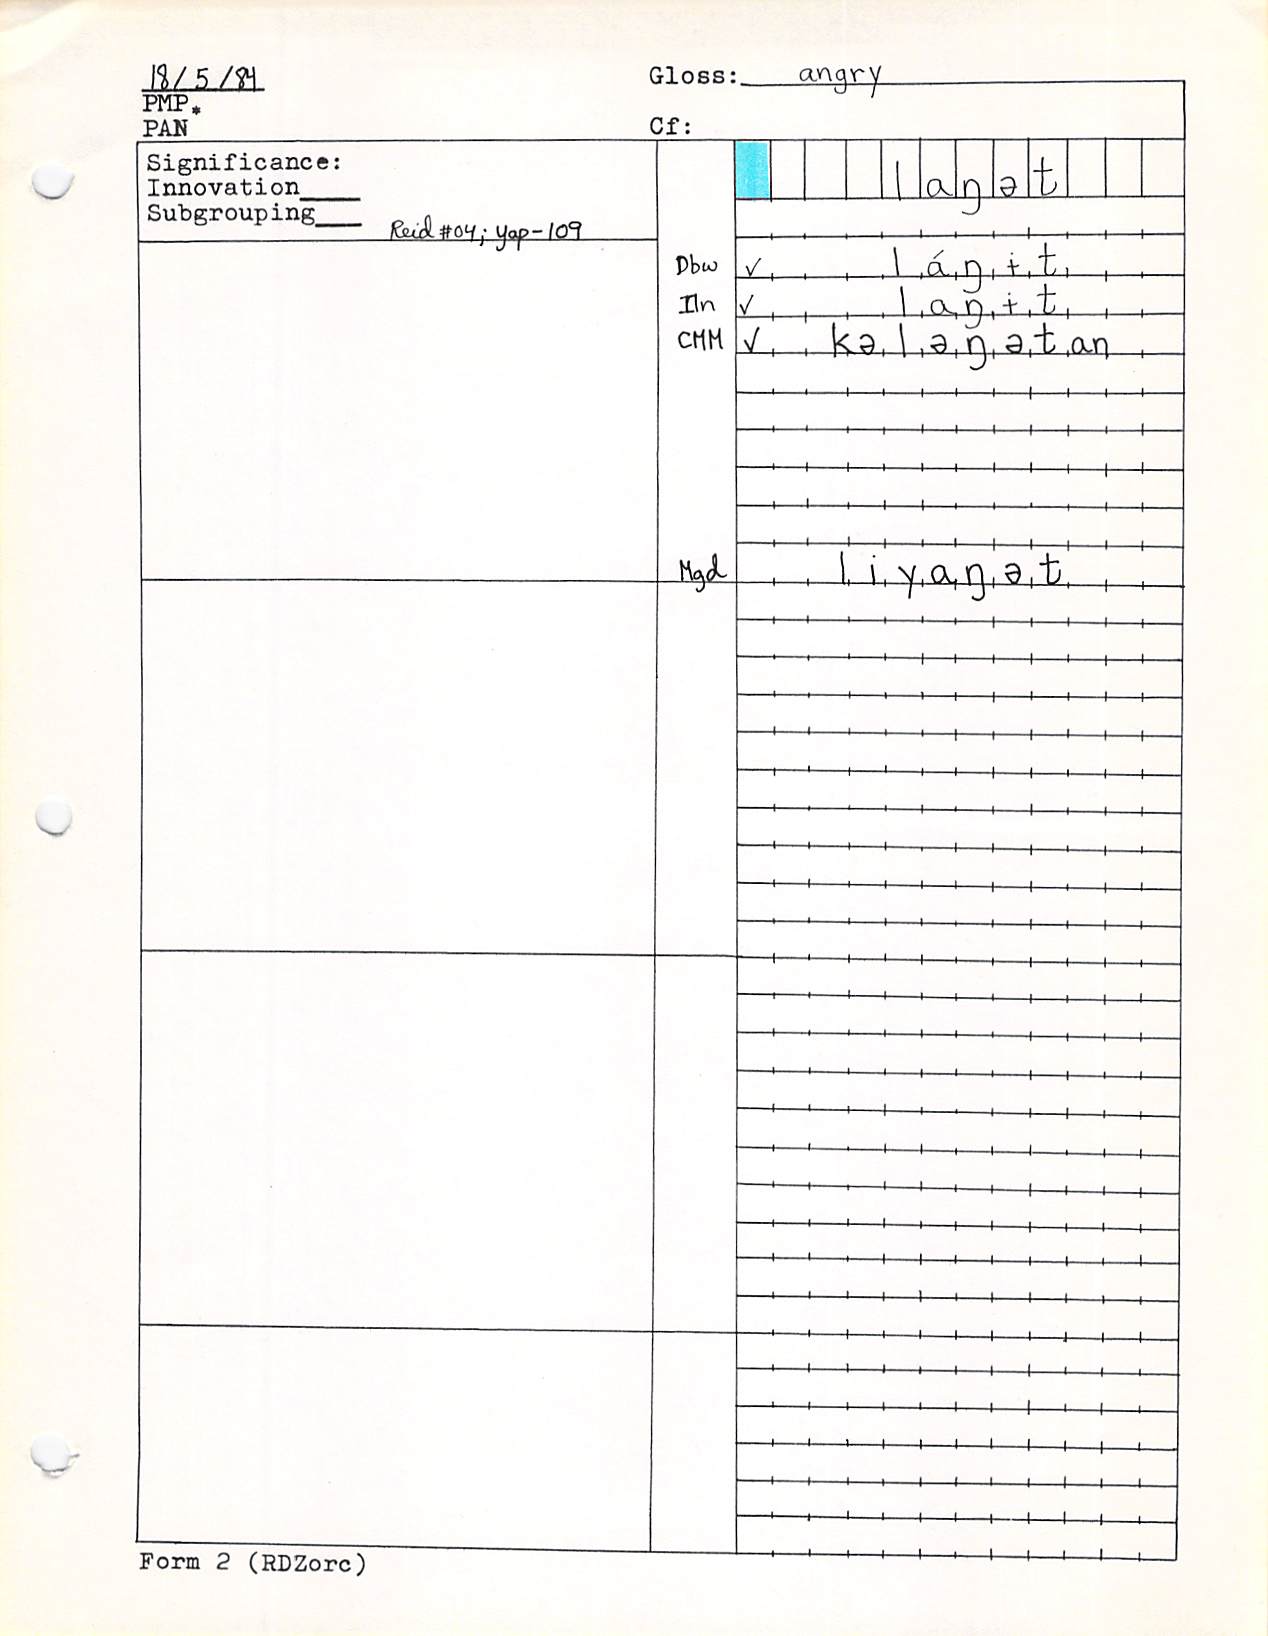 18/5/84
Gloss: angry
PMP*
PAN
Cf:
Significance:
Innovation____
Subgrouping____
Reid #04; Yap-109
laŋət
Dbw ✓ láŋɨt
Iln ✓ laŋɨt
CMM ✓ kələŋətan
Mgd liyaŋət
Form 2 (RDZorc)